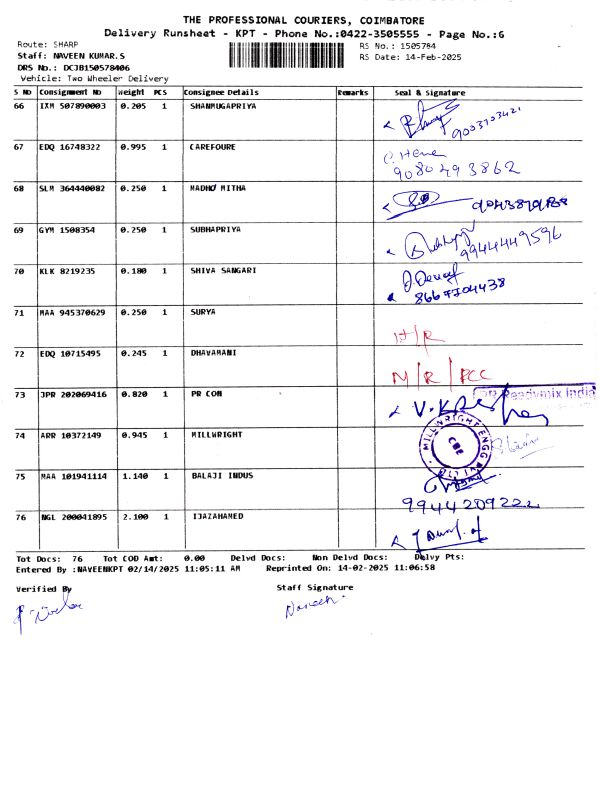 THE PROFESSIONAL COURIERS, COIMBATORE
Delivery Runsheet - KPT - Phone No.:0422-3505555 - Page No.:6
Route: SHARP
RS No.: 1505784
Staff: NAVEEN KUMAR.S
RS Date: 14-Feb-2025
DRS No.: DCJB150578406
Vehicle: Two Wheeler Delivery
S No Consignment No Weight PCS Consignee Details Remarks Seal & Signature
66 IXM 507890003 0.205 1 SHANMUGAPRIYA
67 EDQ 16748322 0.995 1 CAREFOURE
9080493862
68 SLM 364440082 0.250 1 MADHO MITHA
69 GYM 1508354 0.250 1 SUBHAPRIYA
9944449596
70 KLK 8219235 0.180 1 SHIVA SANGARI
8667204438
71 MAA 945370629 0.250 1 SURYA
72 EDQ 10715495 0.245 1 DHAVAMANI
N/R/FCC
73 JPR 202069416 0.820 1 PR CON
Readymix India
74 ARR 10372149 0.945 1 MILLWRIGHT
MILLWRIGHT ENGG
CBE
75 MAA 101941114 1.140 1 BALAJI INDUS
9944209222
76 NGL 200041895 2.100 1 IJAZAHAMED
Tot Docs: 76 Tot COD Amt: 0.00 Delvd Docs: Non Delvd Docs: Delvy Pts:
Entered By :NAVEENKPT 02/14/2025 11:05:11 AM Reprinted On: 14-02-2025 11:06:58
Verified By
Staff Signature
Naveen